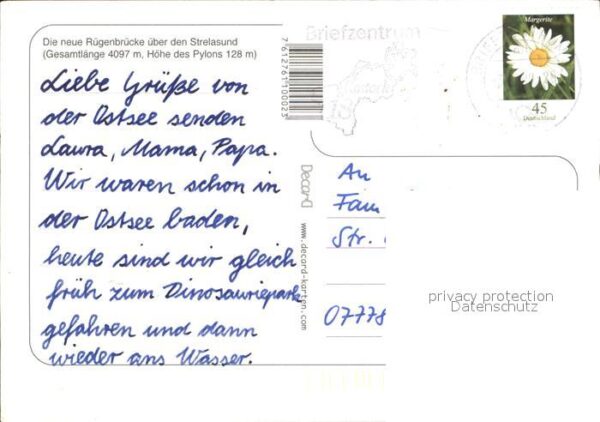 Die neue Rügenbrücke über den Strelasund
(Gesamtlänge 4097 m, Höhe des Pylons 128 m)
Liebe Grüße von
der Ostsee senden
Laura, Mama, Papa.
Wir waren schon in
der Ostsee baden,
heute sind wir gleich
früh zum Dinosaurierpark
gefahren und dann
wieder ans Wasser.
7612761100023
Decard
www.decard-karten.com
Briefzentrum
Margerite
45
Deutschland
An
Fam
Str.
07778
privacy protection
Datenschutz